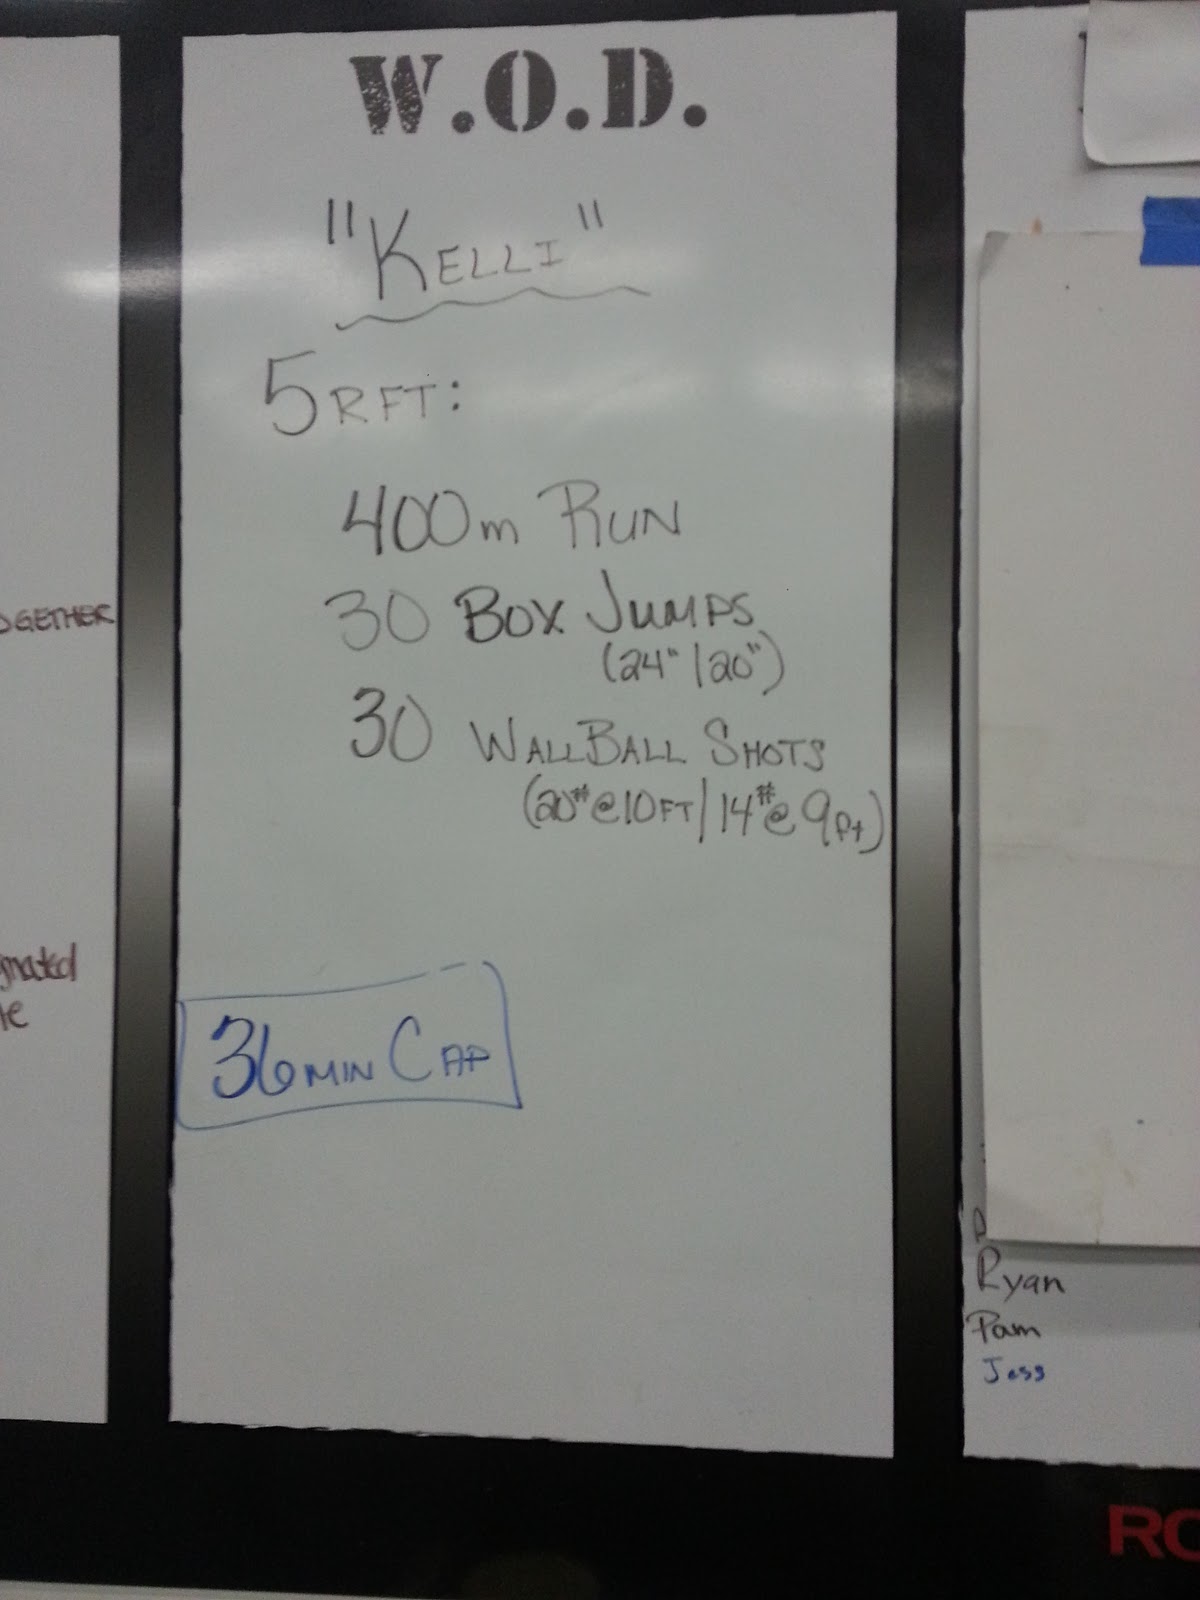 W.O.D.
"KELLI"
5 RFT:
400m RUN
30 BOX JUMPS
(24"/20")
30 WALLBALL SHOTS
(20#@10FT/14#@9Ft)
36 MIN CAP
Ryan
Pam
Jess